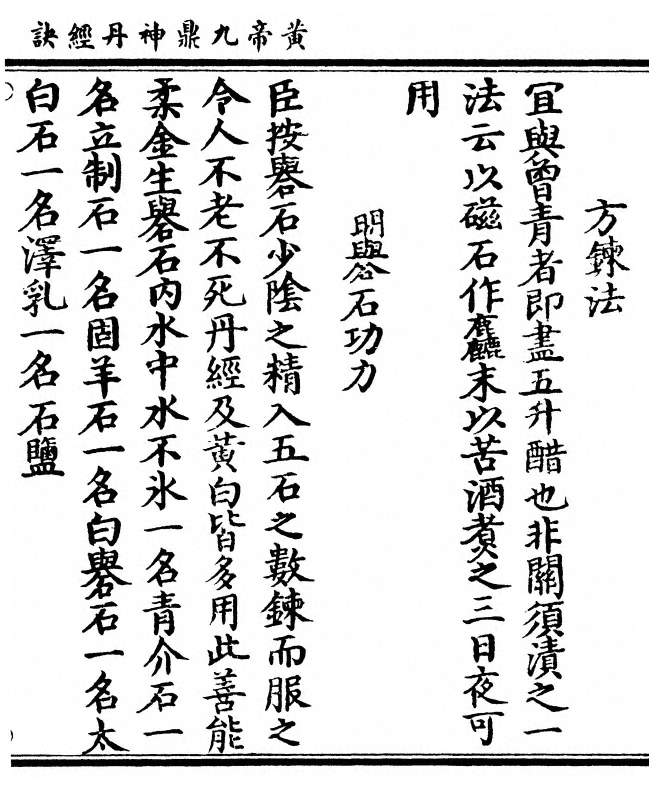 黃帝九鼎神丹經訣
方鍊法
冝與曾青者即盡五升醋也非關須漬之一
法云以磁石作麤末以苦酒煮之三日夜可
用
明礜石功力
臣按礜石少陰之精入五石之數鍊而服之
令人不老不死丹經及黃白皆多用此善能
柔金生礜石內水中水不氷一名青介石一
名立制石一名固羊石一名白礜石一名太
白石一名澤乳一名石鹽